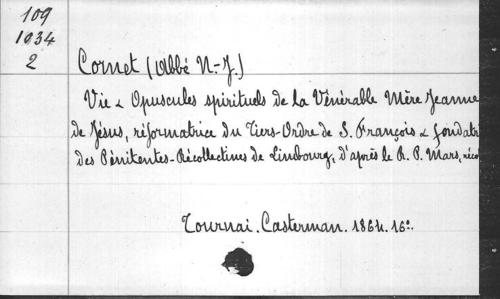 109
1034
2
Cornet (Abbé N.-J.)
Vie & Opuscules spirituels de la Vénérable Mère Jeanne
de Jésus, réformatrice du Tiers-Ordre de S. François & fondatr
des Pénitentes-Récollectines de Limbourg, d'après le R. P. Mars, réco
Tournai. Casterman. 1864. 16º.